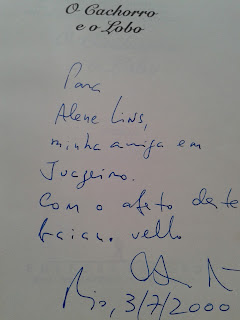 O Cachorro
e o Lobo
Para
Alene Lins,
minha amiga em
Juazeiro.
Com o afeto deste
baiano velho
Rio, 3/7/2000